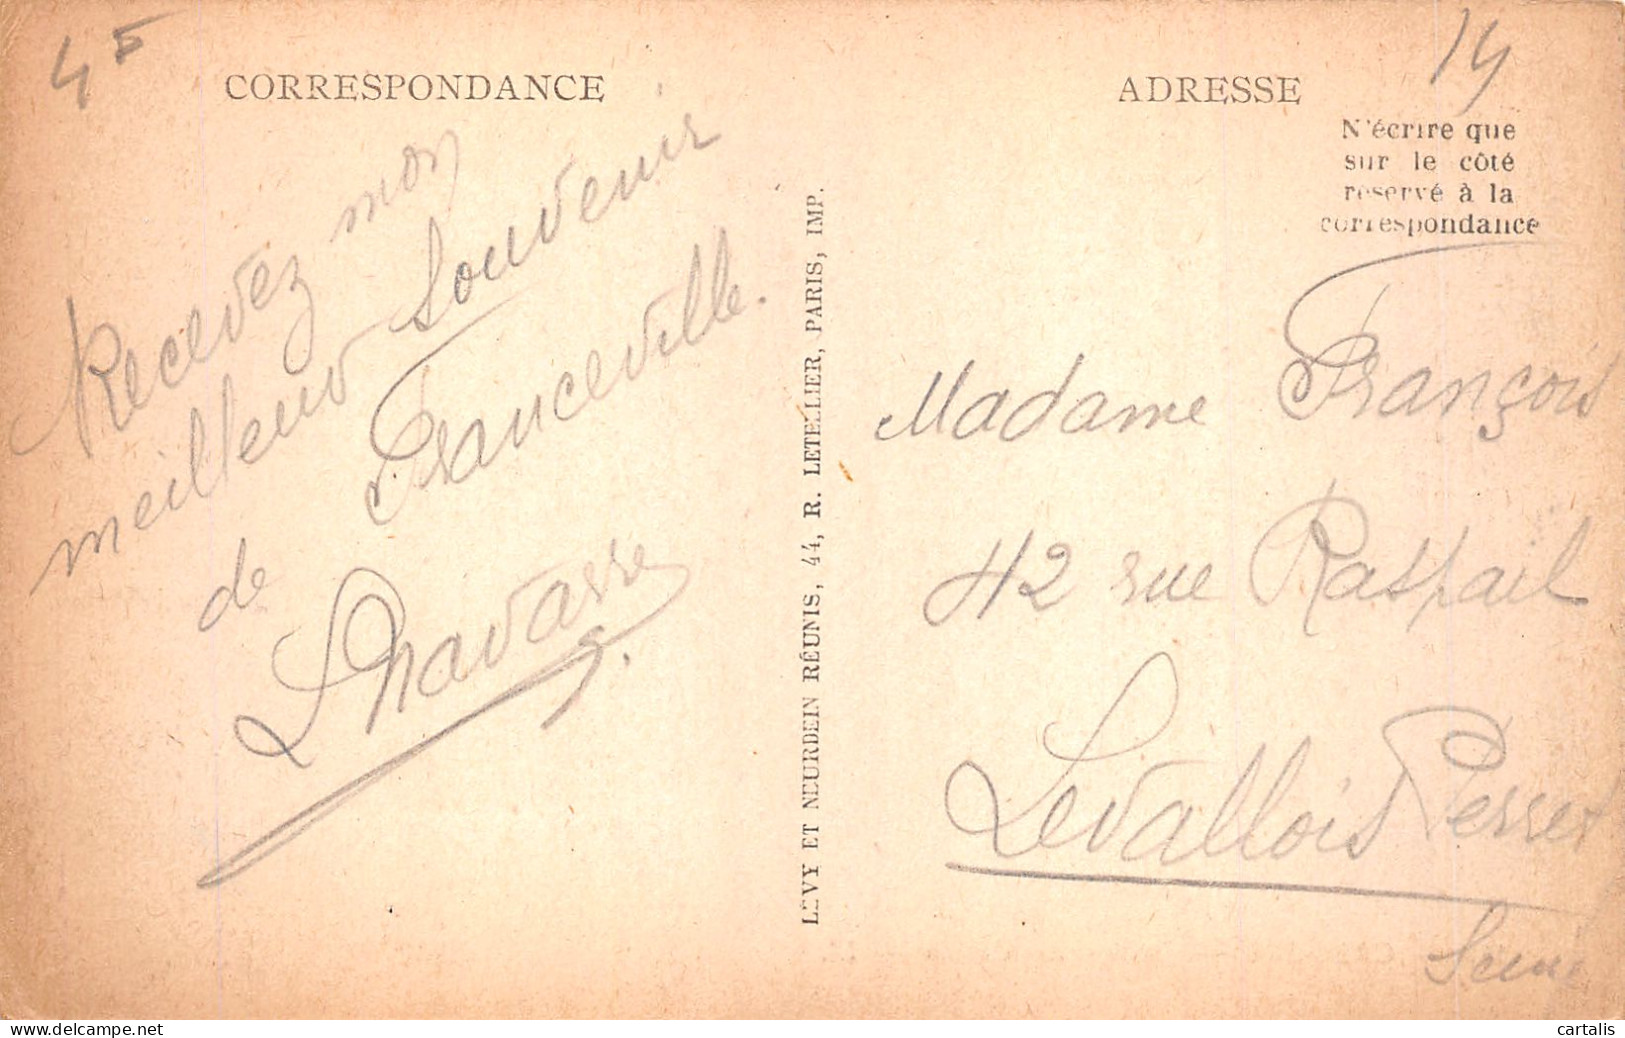 4F
CORRESPONDANCE
Recevez mon
meilleur Souvenir
de Franceville.
LÉVY ET NEURDEIN RÉUNIS, 44, R. LETELLIER, PARIS, IMP.
ADRESSE
14
N'écrire que
sur le côté
réservé à la
correspondance
Madame François
42 rue Raspail
Levallois Perret
Seine
cartalis